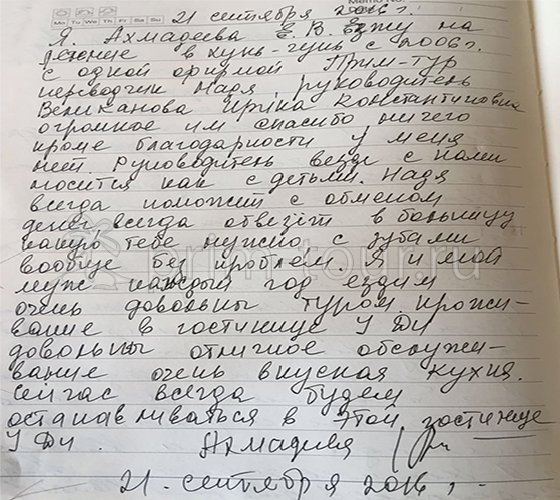 Memo No.
Mo Tu We Th Fr Sa Su
21 сентября 2016 г.
Я. Ахмадеева Е. В. Езжу на
лечение в хунь-гунь с 2006 г.
с одной фирмой Прим-тур
переводчик Надя, руководитель
Великанова Ирина Константиновна
огромное им спасибо ничего
кроме благодарности у меня
нет. Руководитель везде с нами
носится как с детьми. Надя
всегда поможет с обменом
денег всегда отвезёт в больницу
какую тебе нужно с зубами
вообще без проблем. Я и мой
муж каждый год ездим
очень довольны туром прожи-
вание в гостинице У Ди
довольны отличное обслужи-
вание очень вкусная кухня.
Сейчас всегда будем
останавливаться в этой гостинице
У Ди. Ахмадеева
21. сентября 2016 г.
prim-tour.ru